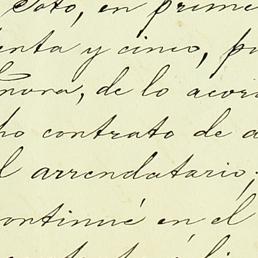 Soto, en prime
enta y cinco, p
nora, de lo acor
ho contrato de a
l arrendatario;
ontinué en el